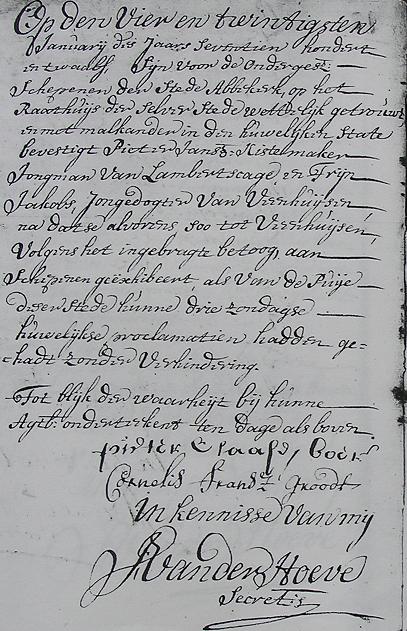 Op den Vier en twintigsten
Januarij dis Jaars Seventien hondert
en twaalf, Sijn voor de ondergest:
Schepenen der Stede Abbekerk, op het
Raathuijs der selver Stede wettelijk getrouwt
en met malkander in den huwelijken State
bevestigt Pieter Jansz: Kistemaker
Jongman van Lambertscage en Trijn
Jakobs, Jongedogter van Veenhuijsen
na dat se alvorens, soo tot Veenhuijsen,
Volgens het ingebragte betoog, aan
Schepenen geëxhibeert, als van de Puije
deser Stede hunne drie zondagse
huwelijkse proclamatien hadden ge-
hadt zonder Verhindering.
Tot blijk der waarheijt bij hunne
Agtb: ondertekent ten dage als boven
pieter Claasz, Boer
Cornelis Fransz Groodt
In kennisse van mij
JvanderHoeve
Secret:s